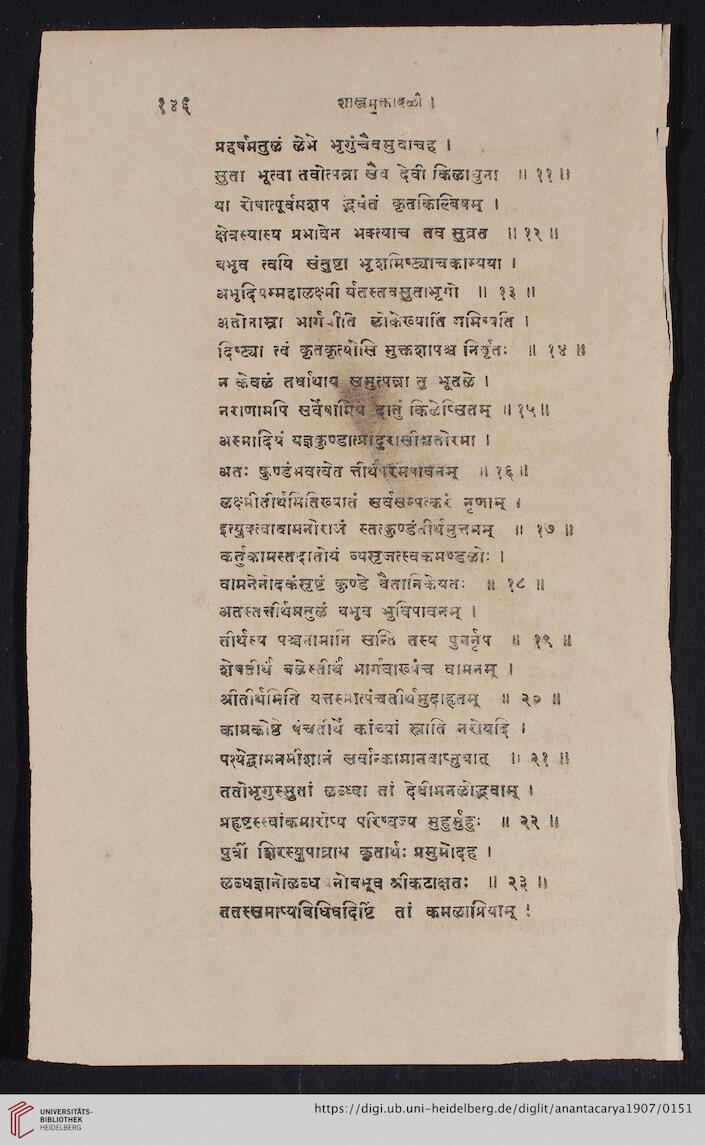 १४६
शास्त्रमुक्तावळी ।
प्रहर्षमतुळं लेभे भृगुंचैवमुवाचह ।
सुता भूत्वा तवोत्पन्ना सैव देवी किळाधुना ॥ ११ ॥
या रोषात्पूर्वमशप द्भवंतं कृतकिल्बिषम् ।
क्षेत्रस्यास्य प्रभावेन भक्त्याच तव सुव्रत ॥ १२ ॥
बभूव त्वयि संतुष्टा भृशमिष्ट्याचकाम्यया ।
अभूदियम्महालक्ष्मी र्यतस्तवसुताभृगो ॥ १३ ॥
अतोनाम्ना भार्गवीति लोकेख्यातिं गमिष्यति ।
दिष्ट्या त्वं कृतकृत्योसि मुक्तशापश्च निर्वृतः ॥ १४ ॥
न केवळं तवार्थाय समुत्पन्ना तु भूतळे ।
नराणामपि सर्वेषामियं दातुं किळेप्सितम् ॥ १५ ॥
अस्मादियं यज्ञकुण्डात्प्रादुरासीद्यतोरमा ।
अतः कुण्डंभवत्वेत त्तीर्थं ॥ १६ ॥
लक्ष्मीतीर्थमितिख्यातं सर्वसम्पत्करं नृणाम् ।
इत्युक्त्वावामनोराजं स्तत्कुण्डंतीर्थमुत्तमम् ॥ १७ ॥
कर्तुकामस्तदातोयं व्यसृजत्स्वकमण्डळोः ।
वामनेनोदकंसृष्टं कुण्डे वैतानिकेयतः ॥ १८ ॥
अतस्तत्तीर्थमतुळं बभूव भुविपावनम् ।
तीर्थस्य पञ्चनामानि सन्ति तस्य पुनर्नृप ॥ १९ ॥
शेषतीर्थं बळेस्तीर्थं भार्गवाख्यंच वामनम् ।
श्रीतीर्थमिति यत्तस्मात्पंचतीर्थमुदाहृतम् ॥ २० ॥
कामकोष्ठे पंचतीर्थे कांच्यां स्नाति नरोयदि ।
पश्येद्वामनमीशानं सर्वान्कामानवाप्नुयात् ॥ २१ ॥
ततोभृगुस्सुतां लब्ध्वा तां देवीमनळोद्भवाम् ।
प्रहृष्टस्स्वांकमारोप्य परिष्वज्य मुहुर्मुहुः ॥ २२ ॥
पुत्रीं शिरस्युपाघ्राय कृतार्थः प्रमुमोदह ।
लब्धज्ञानोलब्ध नोबभूव श्रीकटाक्षतः ॥ २३ ॥
ततस्समाप्यविधिवदिष्टिं तां कमळाप्रियाम् ।
UNIVERSITÄTS-
BIBLIOTHEK
HEIDELBERG
https://digi.ub.uni-heidelberg.de/diglit/anantacarya1907/0151